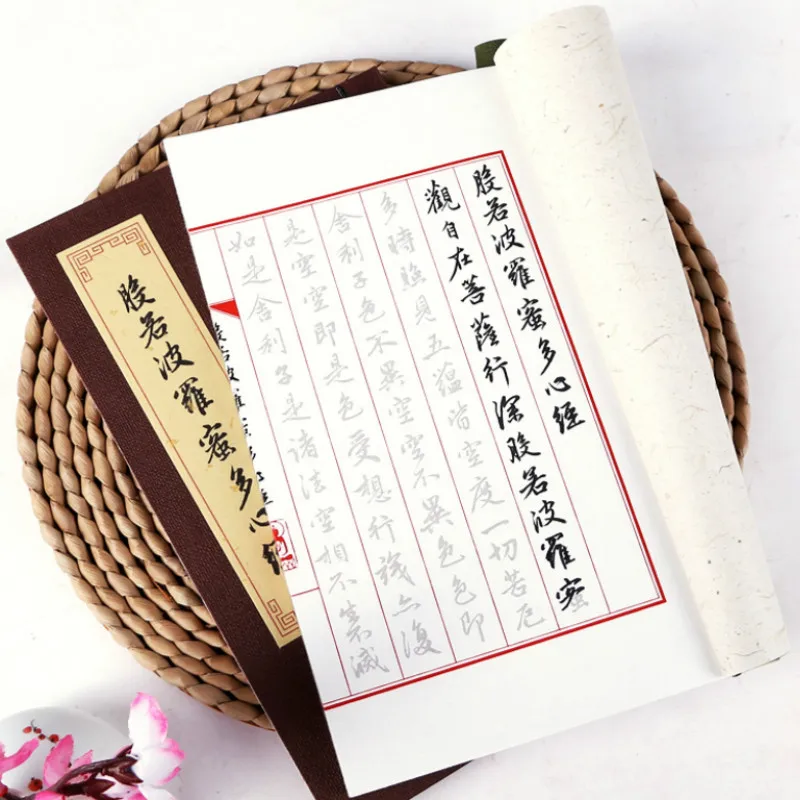 般若波羅蜜多心經
觀自在菩薩行深般若波羅蜜
多時照見五蘊皆空度一切苦厄
舍利子色不異空空不異色色即
是空空即是色受想行識亦復
如是舍利子是諸法空相不生不滅
般若波羅蜜多心經
般若波羅蜜多心經